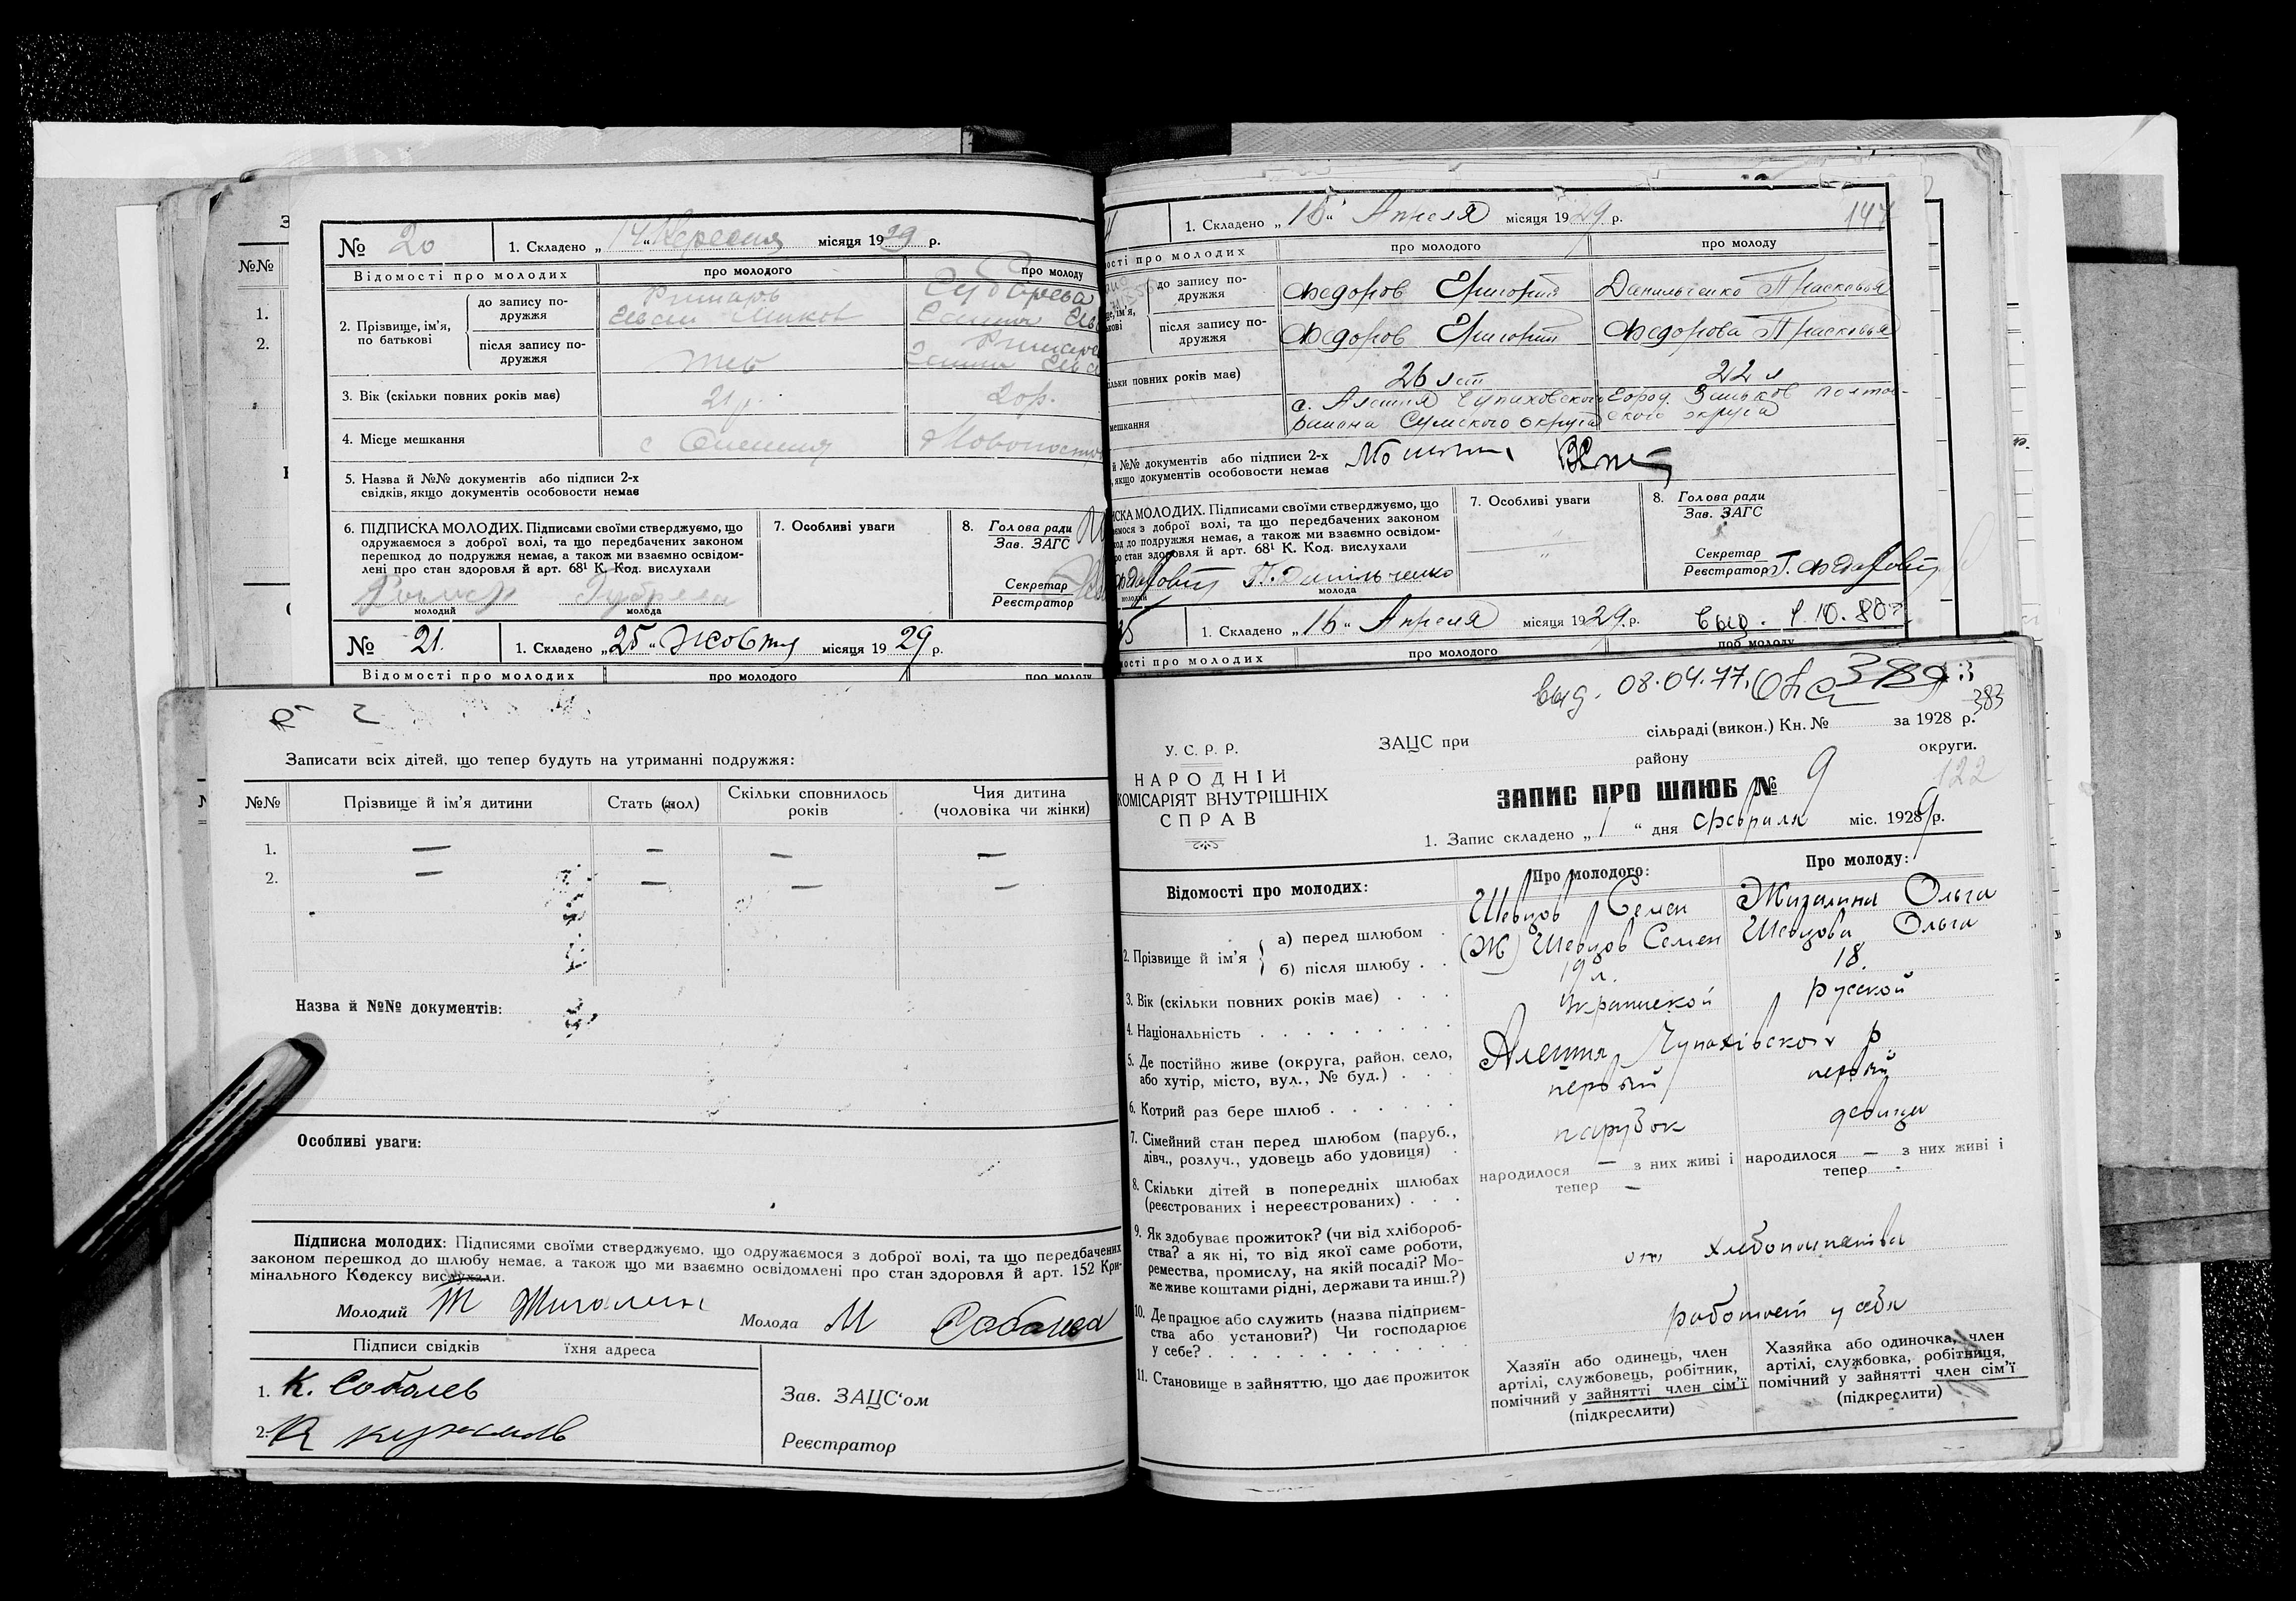 № 20 1. Складено „14“ Вересня місяця 1929 р.
Відомості про молодих про молодого про молоду
2. Прізвище, ім'я, по батькові
до запису подружжя
після запису подружжя
3. Вік (скільки повних років має) 21 р. 20 р.
4. Місце мешкання
5. Назва й №№ документів або підписи 2-х
свідків, якщо документів особовости немає
6. ПІДПИСКА МОЛОДИХ. Підписами своїми стверджуємо, що
одружаємося з доброї волі, та що передбачених законом
перешкод до подружжя немає, а також ми взаємно освідом-
лені про стан здоровля й арт. 68¹ К. Код. вислухали
молодий молода
7. Особливі уваги
8. Голова ради
Зав. ЗАГС
Секретар
Реєстратор
№ 21. 1. Складено „25“ Жовтня місяця 1929 р.
Відомості про молодих про молодого про молоду
1. Складено „16“ Апреля місяця 1929 р. 147
ості про молодих про молодого про молоду
до запису подружжя Федоров Григорий Данильченко Прасковья
після запису подружжя Федоров Григорий Федорова Прасковья
ільки повних років має) 26 лет 22 л
мешкання
с. Алешня Чупаховского Город Зиньков Полтав-
района Сумского округа ского округа
й №№ документів або підписи 2-х
, якщо документів особовости немає
ИСКА МОЛОДИХ. Підписами своїми стверджуємо, що
ємося з доброї волі, та що передбачених законом
од до подружжя немає, а також ми взаємно освідом-
ро стан здоровля й арт. 68¹ К. Код. вислухали
П. Данільченко
молодий молода
7. Особливі уваги
8. Голова ради
Зав. ЗАГС
Секретар
Реєстратор
1. Складено „16“ Апреля місяця 1929 р. выд. 1.10.80
ості про молодих про молодого про молоду
Записати всіх дітей, що тепер будуть на утриманні подружжя:
№№ Прізвище й ім'я дитини Стать (пол) Скільки сповнилось років Чия дитина (чоловіка чи жінки)
1. — — — —
2. — — — —
Назва й №№ документів:
Особливі уваги:
Підписка молодих: Підписями своїми стверджуємо, що одружаємося з доброї волі, та що передбачених
законом перешкод до шлюбу немає, а також що ми взаємно освідомлені про стан здоровля й арт. 152 Кри-
мінального Кодексу вислухали.
Молодий Молода
Підписи свідків їхня адреса
1. К. Соболев
2.
Зав. ЗАЦС'ом
Реєстратор
выд. 08.04.77.
383
ЗАЦС при сільраді (викон.) Кн. № за 1928 р.
району округи.
122
У. С. Р. Р.
НАРОДНІЙ
КОМІСАРІЯТ ВНУТРІШНІХ
СПРАВ
ЗАПИС ПРО ШЛЮБ № 9
1. Запис складено „1“ дня февраля міс. 1929 р.
Відомості про молодих: Про молодого: Про молоду:
2. Прізвище й ім'я
а) перед шлюбом Шевцов Семен Жигалина Ольга
б) після шлюбу (Ж) Шевцов Семен Шевцова Ольга
3. Вік (скільки повних років має) 19 л. 18.
4. Національність русской
5. Де постійно живе (округа, район, село,
або хутір, місто, вул., № буд.) Алешня Чупахівского р
6. Котрий раз бере шлюб первый первый
7. Сімейний стан перед шлюбом (паруб.,
дівч., розлуч., удовець або удовиця) парубок девица
8. Скільки дітей в попередніх шлюбах
(реєстрованих і нереєстрованих)
народилося — з них живі і тепер — народилося — з них живі і тепер -
9. Як здобуває прожиток? (чи від хлібороб-
ства? а як ні, то від якої саме роботи,
ремества, промислу, на якій посаді? Мо-
же живе коштами рідні, держави та инш.?)
от хлебопашества
10. Де працює або служить (назва підприєм-
ства або установи?) Чи господарює
у себе?
работает у себя
11. Становище в зайняттю, що дає прожиток
Хазяїн або одинець, член
артілі, службовець, робітник,
помічний у зайнятті член сім'ї
(підкреслити)
Хазяйка або одиночка, член
артілі, службовка, робітниця,
помічний у зайнятті член сім'ї
(підкреслити)